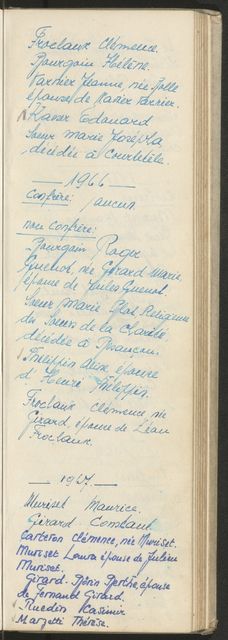 Froclaux Clémence.
Bourgoin Hélène.
Varrier Jeanne, née Bolle
épouse de Xavier Varrier.
Xavier Edouard
Soeur Marie Josépha
décédée à Courtételle.
1966
Confrère: aucun
non confrère:
Bourgoin Roger
Guenot, née Girard Marie
épouse de Jules Guenot.
Soeur Marie Religieuse
des Soeurs de la Charité
décédée à Besançon.
Philippin épouse
d'Henri Philippin.
Froclaux Clémence née
Girard épouse de Léon
Froclaux.
1967.
Muriset Maurice.
Girard Constant
Carteron Clémence, née Muriset.
Muriset Laura épouse de Julien
Muriset.
Girard-Berthe, épouse
de Fernand Girard.
Ruedin Casimir
Thérèse.